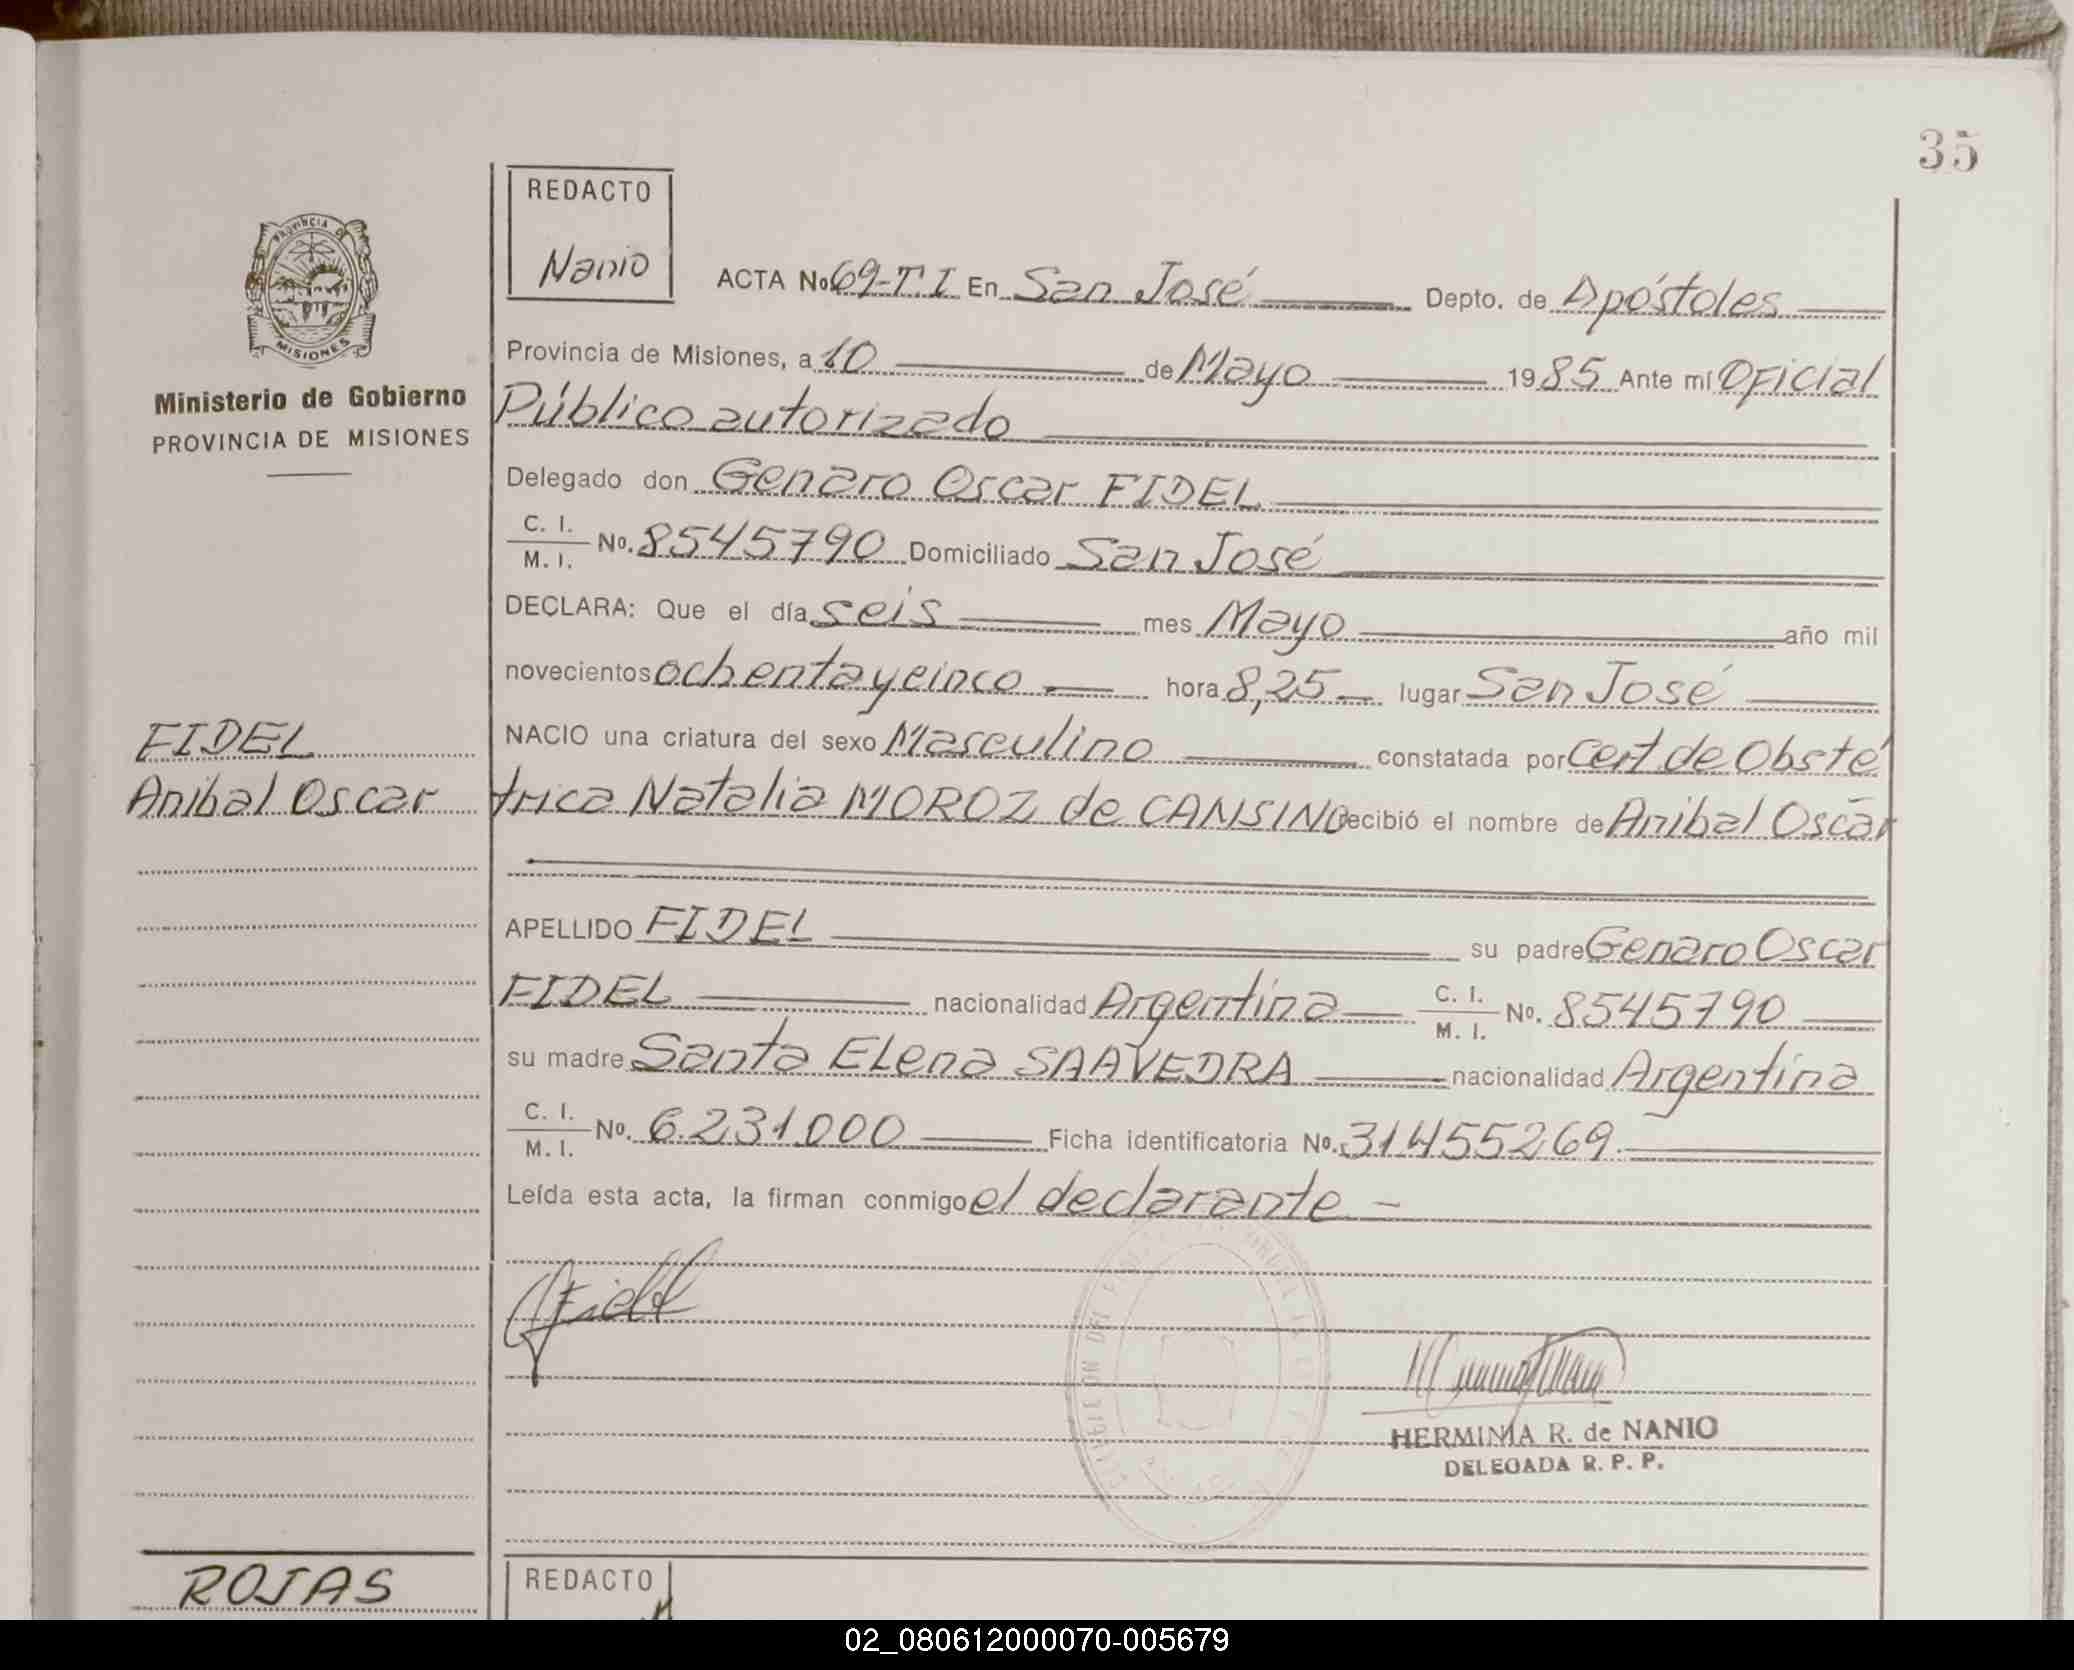 35
REDACTO
Nanio
PROVINCIA DE
MISIONES
Ministerio de Gobierno
PROVINCIA DE MISIONES
ACTA No. 69-T.I En San José Depto. de Apóstoles
Provincia de Misiones, a 10 de Mayo 1985 Ante mí Oficial
Público autorizado
Delegado don Genaro Oscar FIDEL
C. I. / M. I. No. 8545790 Domiciliado San José
DECLARA: Que el día seis mes Mayo año mil
novecientos ochentaycinco hora 8,25 lugar San José
FIDEL
NACIO una criatura del sexo Masculino constatada por Cert de Obsté
Anibal Oscar
trica Natalia MOROZ de CANSINO recibió el nombre de Anibal Oscar
APELLIDO FIDEL su padre Genaro Oscar
FIDEL nacionalidad Argentina C. I. / M. I. No. 8545790
su madre Santa ELena SAAVEDRA nacionalidad Argentina
C. I. / M. I. No. 6.231.000 Ficha identificatoria No. 31455269.
Leída esta acta, la firman conmigo el declarante -
Fidel
HERMINIA R. de NANIO
DELEGADA R. P. P.
ROJAS
REDACTO
02_080612000070-005679